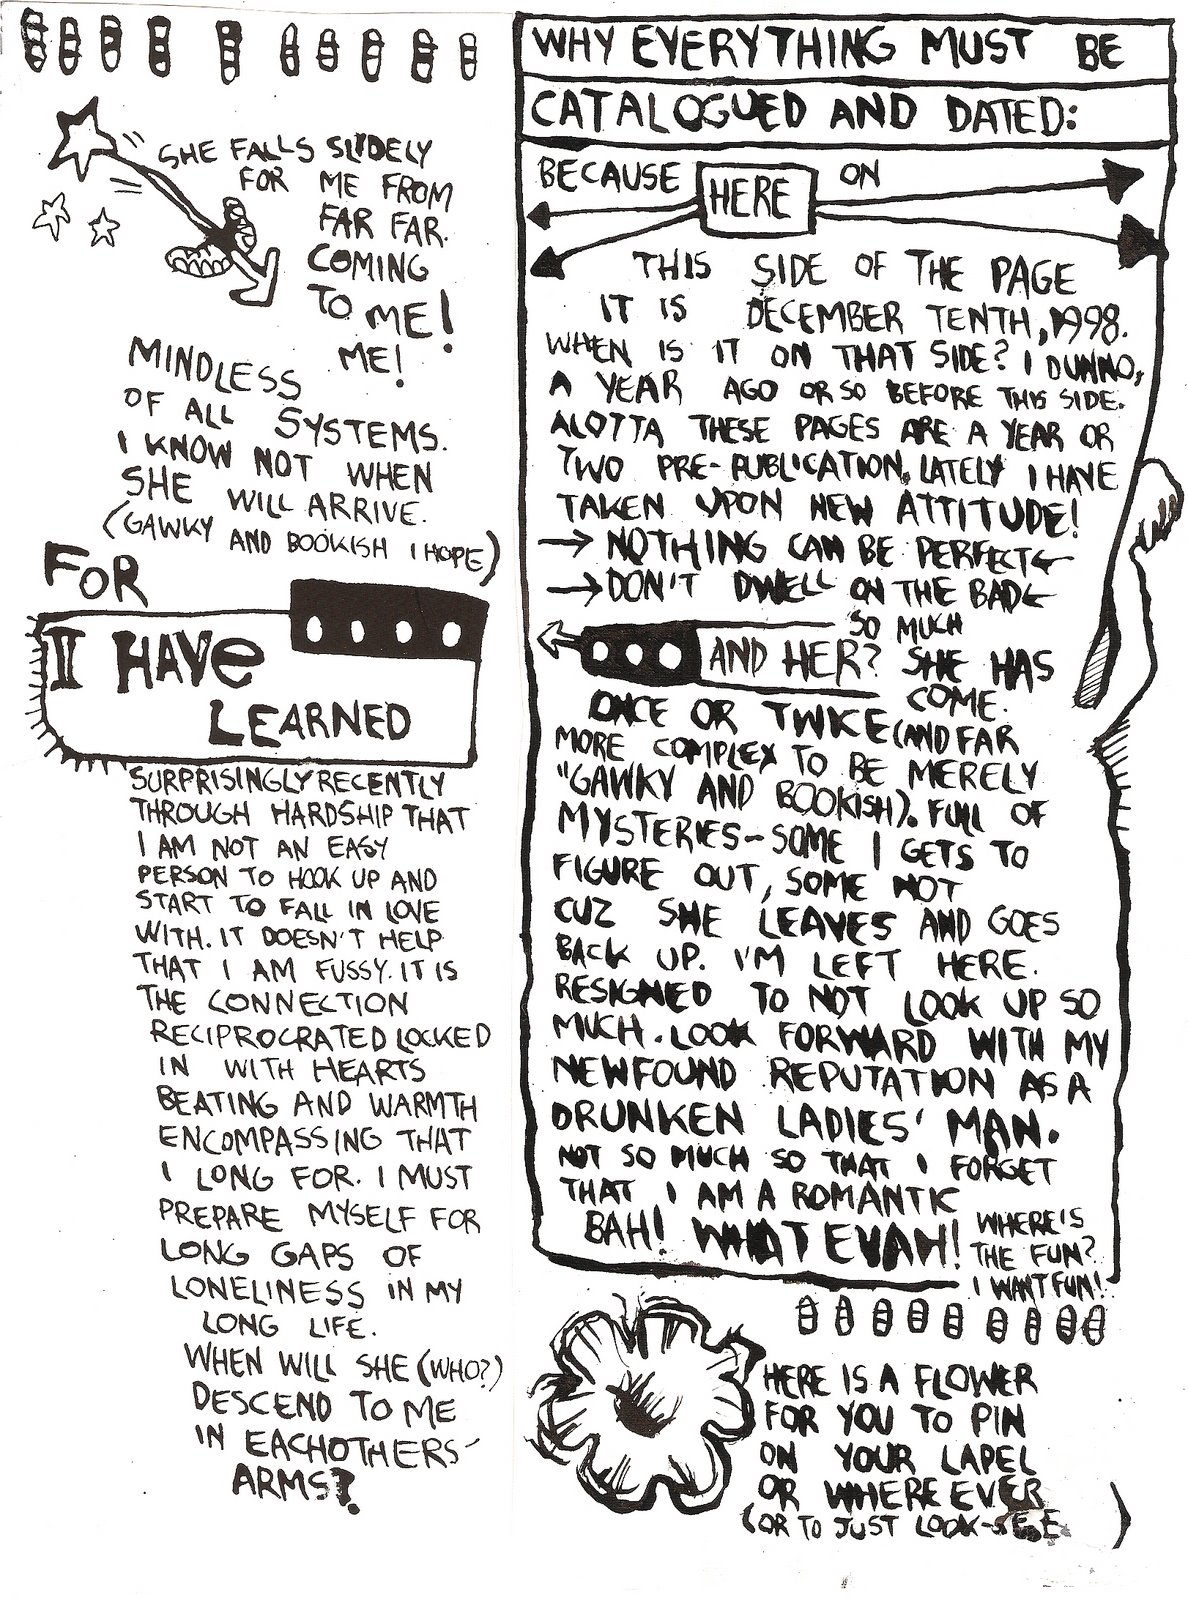 SHE FALLS SLIDELY
FOR ME FROM
FAR FAR.
COMING
TO ME!
ME!
MINDLESS
OF ALL SYSTEMS.
I KNOW NOT WHEN
SHE WILL ARRIVE.
(GAWKY AND BOOKISH I HOPE)
FOR
I HAVE
LEARNED
SURPRISINGLY RECENTLY
THROUGH HARDSHIP THAT
I AM NOT AN EASY
PERSON TO HOOK UP AND
START TO FALL IN LOVE
WITH. IT DOESN'T HELP
THAT I AM FUSSY. IT IS
THE CONNECTION
RECIPROCRATED LOCKED
IN WITH HEARTS
BEATING AND WARMTH
ENCOMPASSING THAT
I LONG FOR. I MUST
PREPARE MYSELF FOR
LONG GAPS OF
LONELINESS IN MY
LONG LIFE.
WHEN WILL SHE (WHO?)
DESCEND TO ME
IN EACHOTHERS'
ARMS?
WHY EVERYTHING MUST BE
CATALOGUED AND DATED:
BECAUSE HERE ON
THIS SIDE OF THE PAGE
IT IS DECEMBER TENTH, 1998.
WHEN IS IT ON THAT SIDE? I DUNNO,
A YEAR AGO OR SO BEFORE THIS SIDE.
ALOTTA THESE PAGES ARE A YEAR OR
TWO PRE-PUBLICATION. LATELY I HAVE
TAKEN UPON NEW ATTITUDE!
→ NOTHING CAN BE PERFECT ←
→ DON'T DWELL ON THE BAD ←
SO MUCH
AND HER? SHE HAS
COME.
ONCE OR TWICE (AND FAR
MORE COMPLEX TO BE MERELY
"GAWKY AND BOOKISH). FULL OF
MYSTERIES-SOME I GETS TO
FIGURE OUT, SOME NOT
CUZ SHE LEAVES AND GOES
BACK UP. I'M LEFT HERE.
RESIGNED TO NOT LOOK UP SO
MUCH. LOOK FORWARD WITH MY
NEWFOUND REPUTATION AS A
DRUNKEN LADIES' MAN.
NOT SO MUCH SO THAT I FORGET
THAT I AM A ROMANTIC
BAH! WHATEVAH! WHERE'S
THE FUN?
I WANT FUN!
HERE IS A FLOWER
FOR YOU TO PIN
ON YOUR LAPEL
OR WHERE EVER
(OR TO JUST LOOK-SEE)